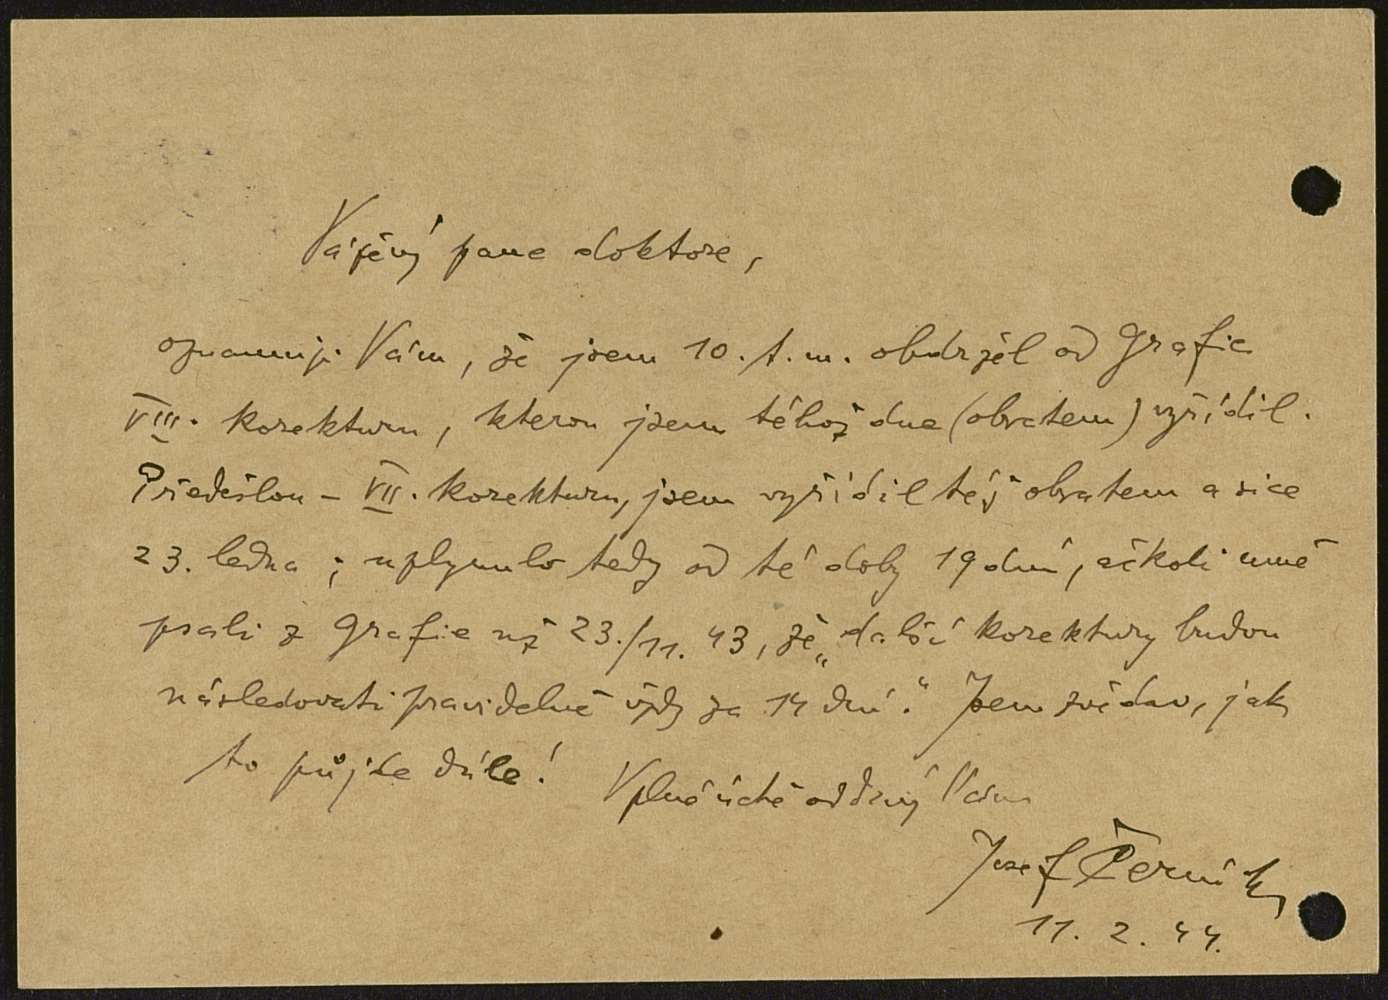 Vážený pane doktore,
oznamuji Vám, že jsem 10. t. m. obdržel od Grafie
VIII. korekturu, kterou jsem téhož dne (obratem) vyřídil.
Předešlou – VII. korekturu, jsem vyřídil též obratem a sice
23. ledna; uplynulo tedy od té doby 19 dní, ačkoli mně
psali z Grafie už 23./11. 43, že „další korektury budou
následovati pravidelně vždy za 14 dní.“ Jsem zvědav, jak
to půjde dále!
V plné úctě oddaný Vám
Josef Černík
11. 2. 44.